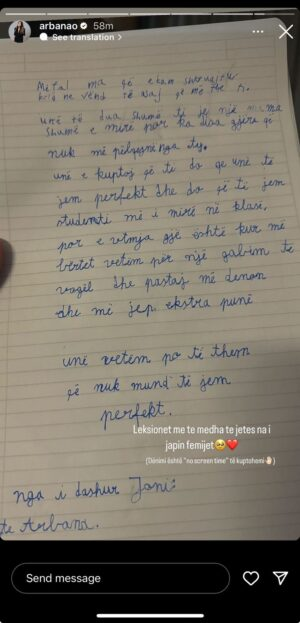 arbanao 58m
See translation >
unë të dua shumë ti je një mama
shumë e mirë por ka disa gjëra që
nuk më pëlqejnë nga ty.
unë e kuptoj që ti do që unë të
jem perfekt dhe do që të jem
studenti më i mirë në klasë,
por e vetmja gjë është kur më
bërtet vetëm për një gabim te
vogël dhe pastaj më denon
dhe më jep ekstra punë
unë vetëm po të them
që nuk mund të jem
perfekt.
Leksionet me te medha te jetes na i
japin femijet🥹❤️
(Dënimi është "no screen time" të kuptohemi🤚🏻)
nga i dashur Joni
te Arbana.
Send message